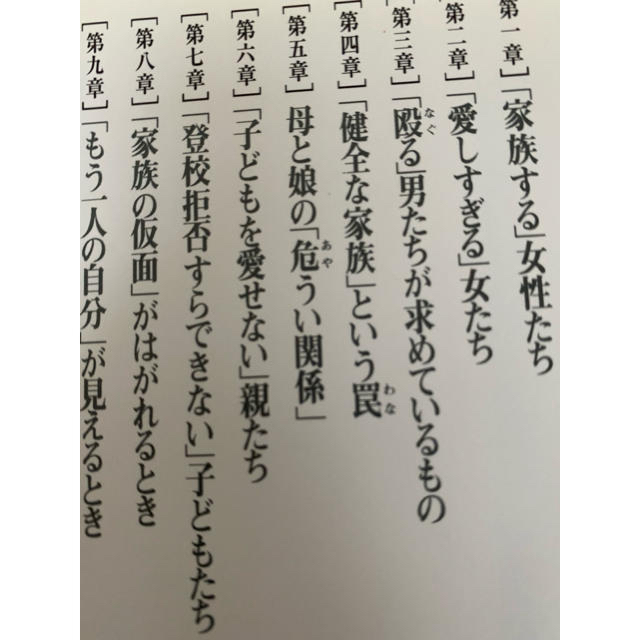 [第一章]「家族する」女性たち
[第二章]「愛しすぎる」女たち
[第三章]「殴る」男たちが求めているもの
[第四章]「健全な家族」という罠
[第五章]母と娘の「危うい関係」
[第六章]「子どもを愛せない」親たち
[第七章]「登校拒否すらできない」子どもたち
[第八章]「家族の仮面」がはがれるとき
[第九章]「もう一人の自分」が見えるとき